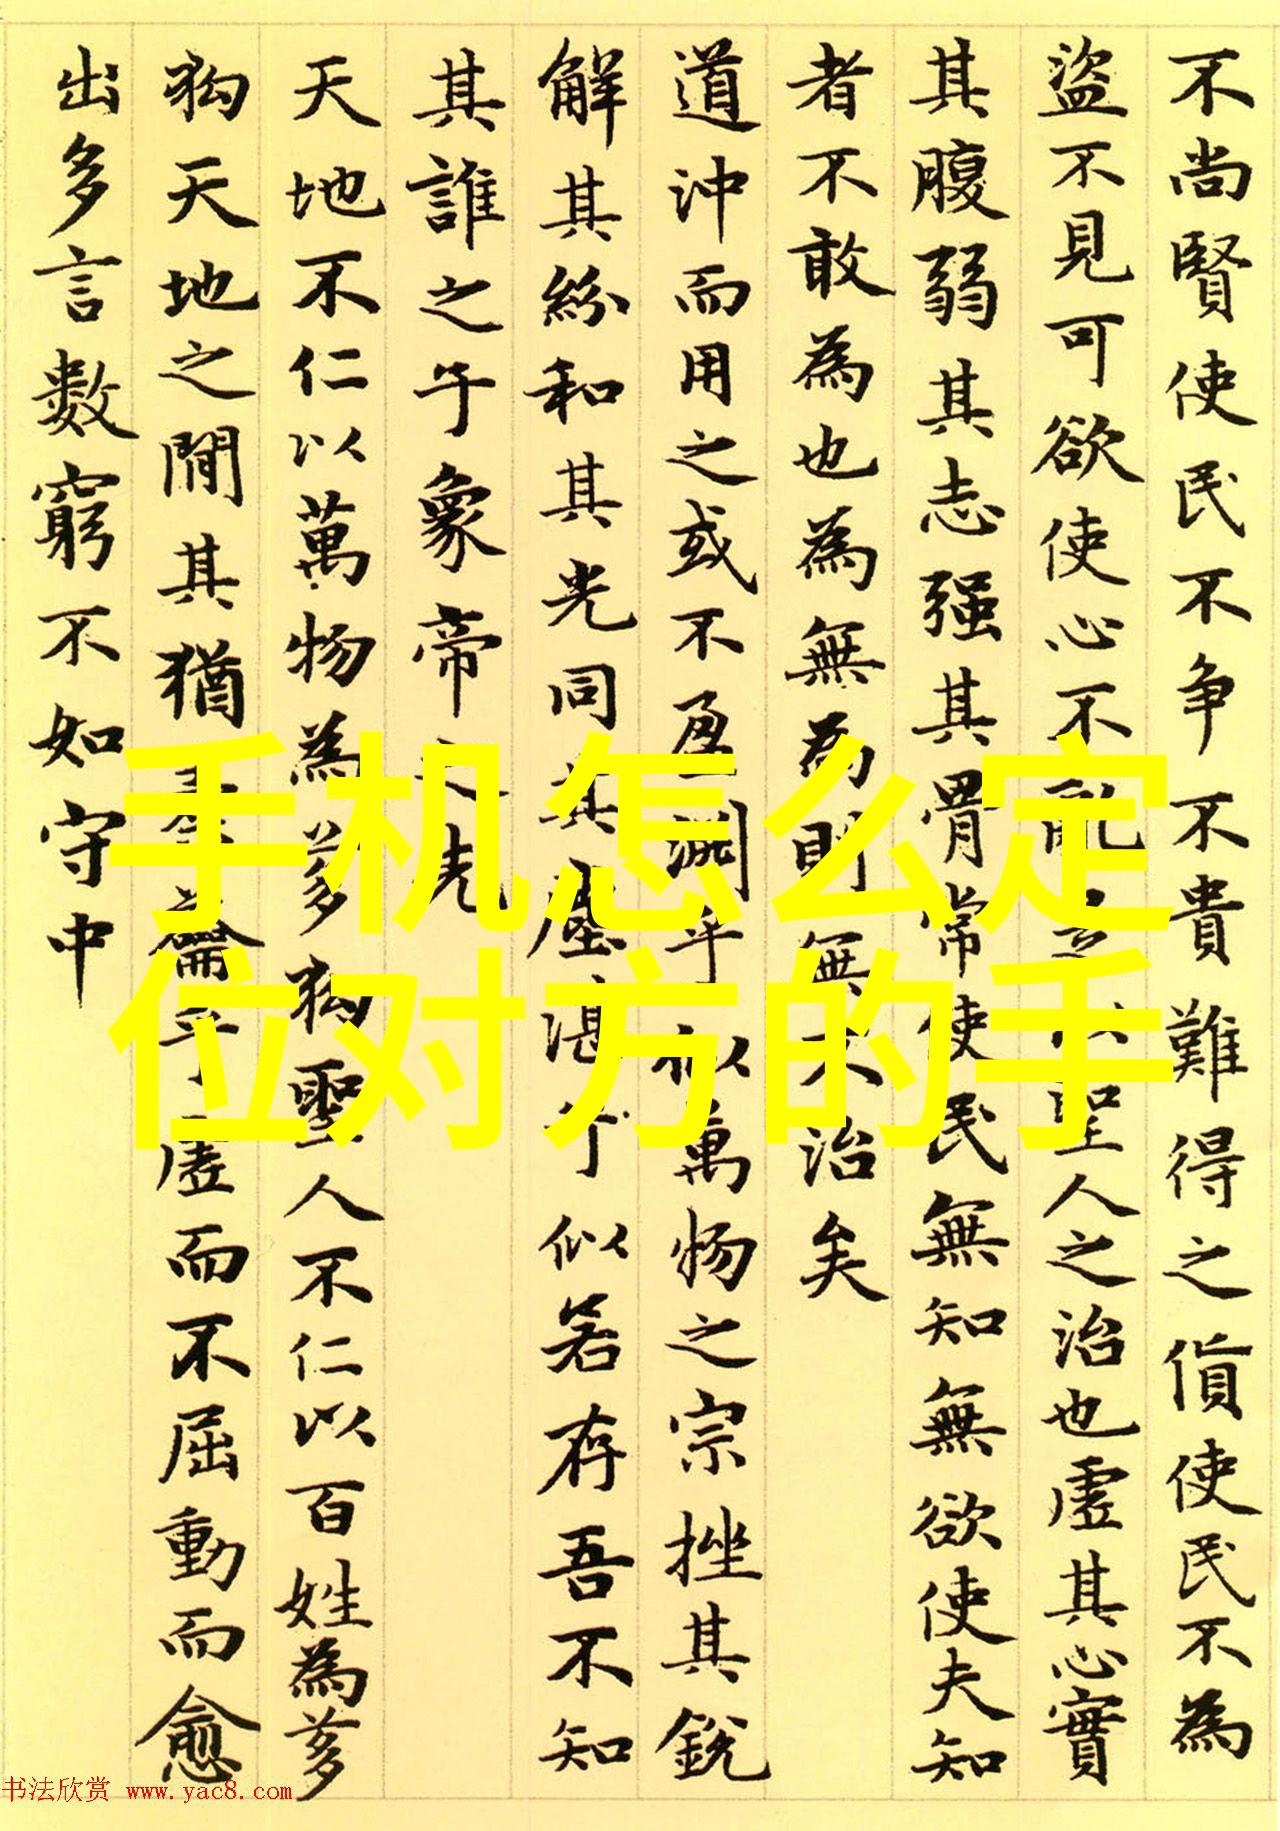 不尚賢使民不争不貴難得之貨使民不為
盜不見可欲使心不亂是以聖人之治也虛其心實
其腹弱其志强其骨常使民無知無欲使夫知
者不敢為也為無為則無不治矣
道沖而用之或不盈淵乎似萬物之宗挫其銳
解其紛和其光同其塵湛兮似若存吾不知
其誰之子象帝之先
天地不仁以萬物為芻狗聖人不仁以百姓為芻
狗天地之間其猶橐籥乎虛而不屈動而愈
出多言數窮不如守中
手机怎么定
位对方的手
书法欣赏 www.yac8.com